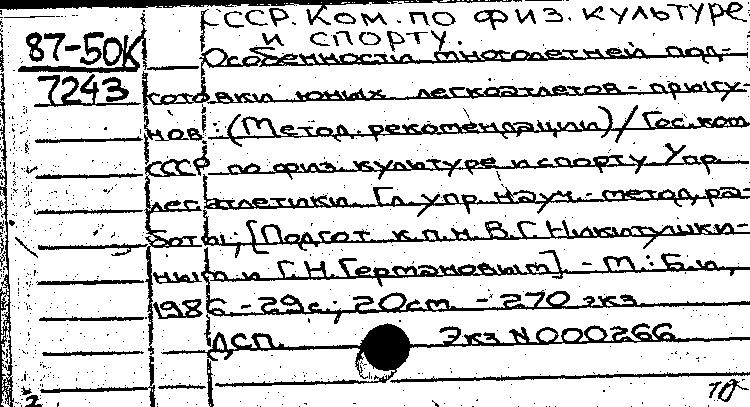 СССР. Ком. по физ. культуре
и спорту.
87-50К
7243
Особенности многолетней под-
готовки юных легкоатлетов - прыгу-
нов : (Метод. рекомендации) / Гос. ком.
СССР по физ. культуре и спорту. Упр.
лег. атлетики. Гл. упр. науч.-метод. ра-
боты; [Подгот. к.п.н. В.Г. Никитушки-
ным и Г.Н. Германовым]. - М. : Б.и,
1986. - 29 с.; 20 см. - 270 экз.
ДСП. Экз N000266
2
10